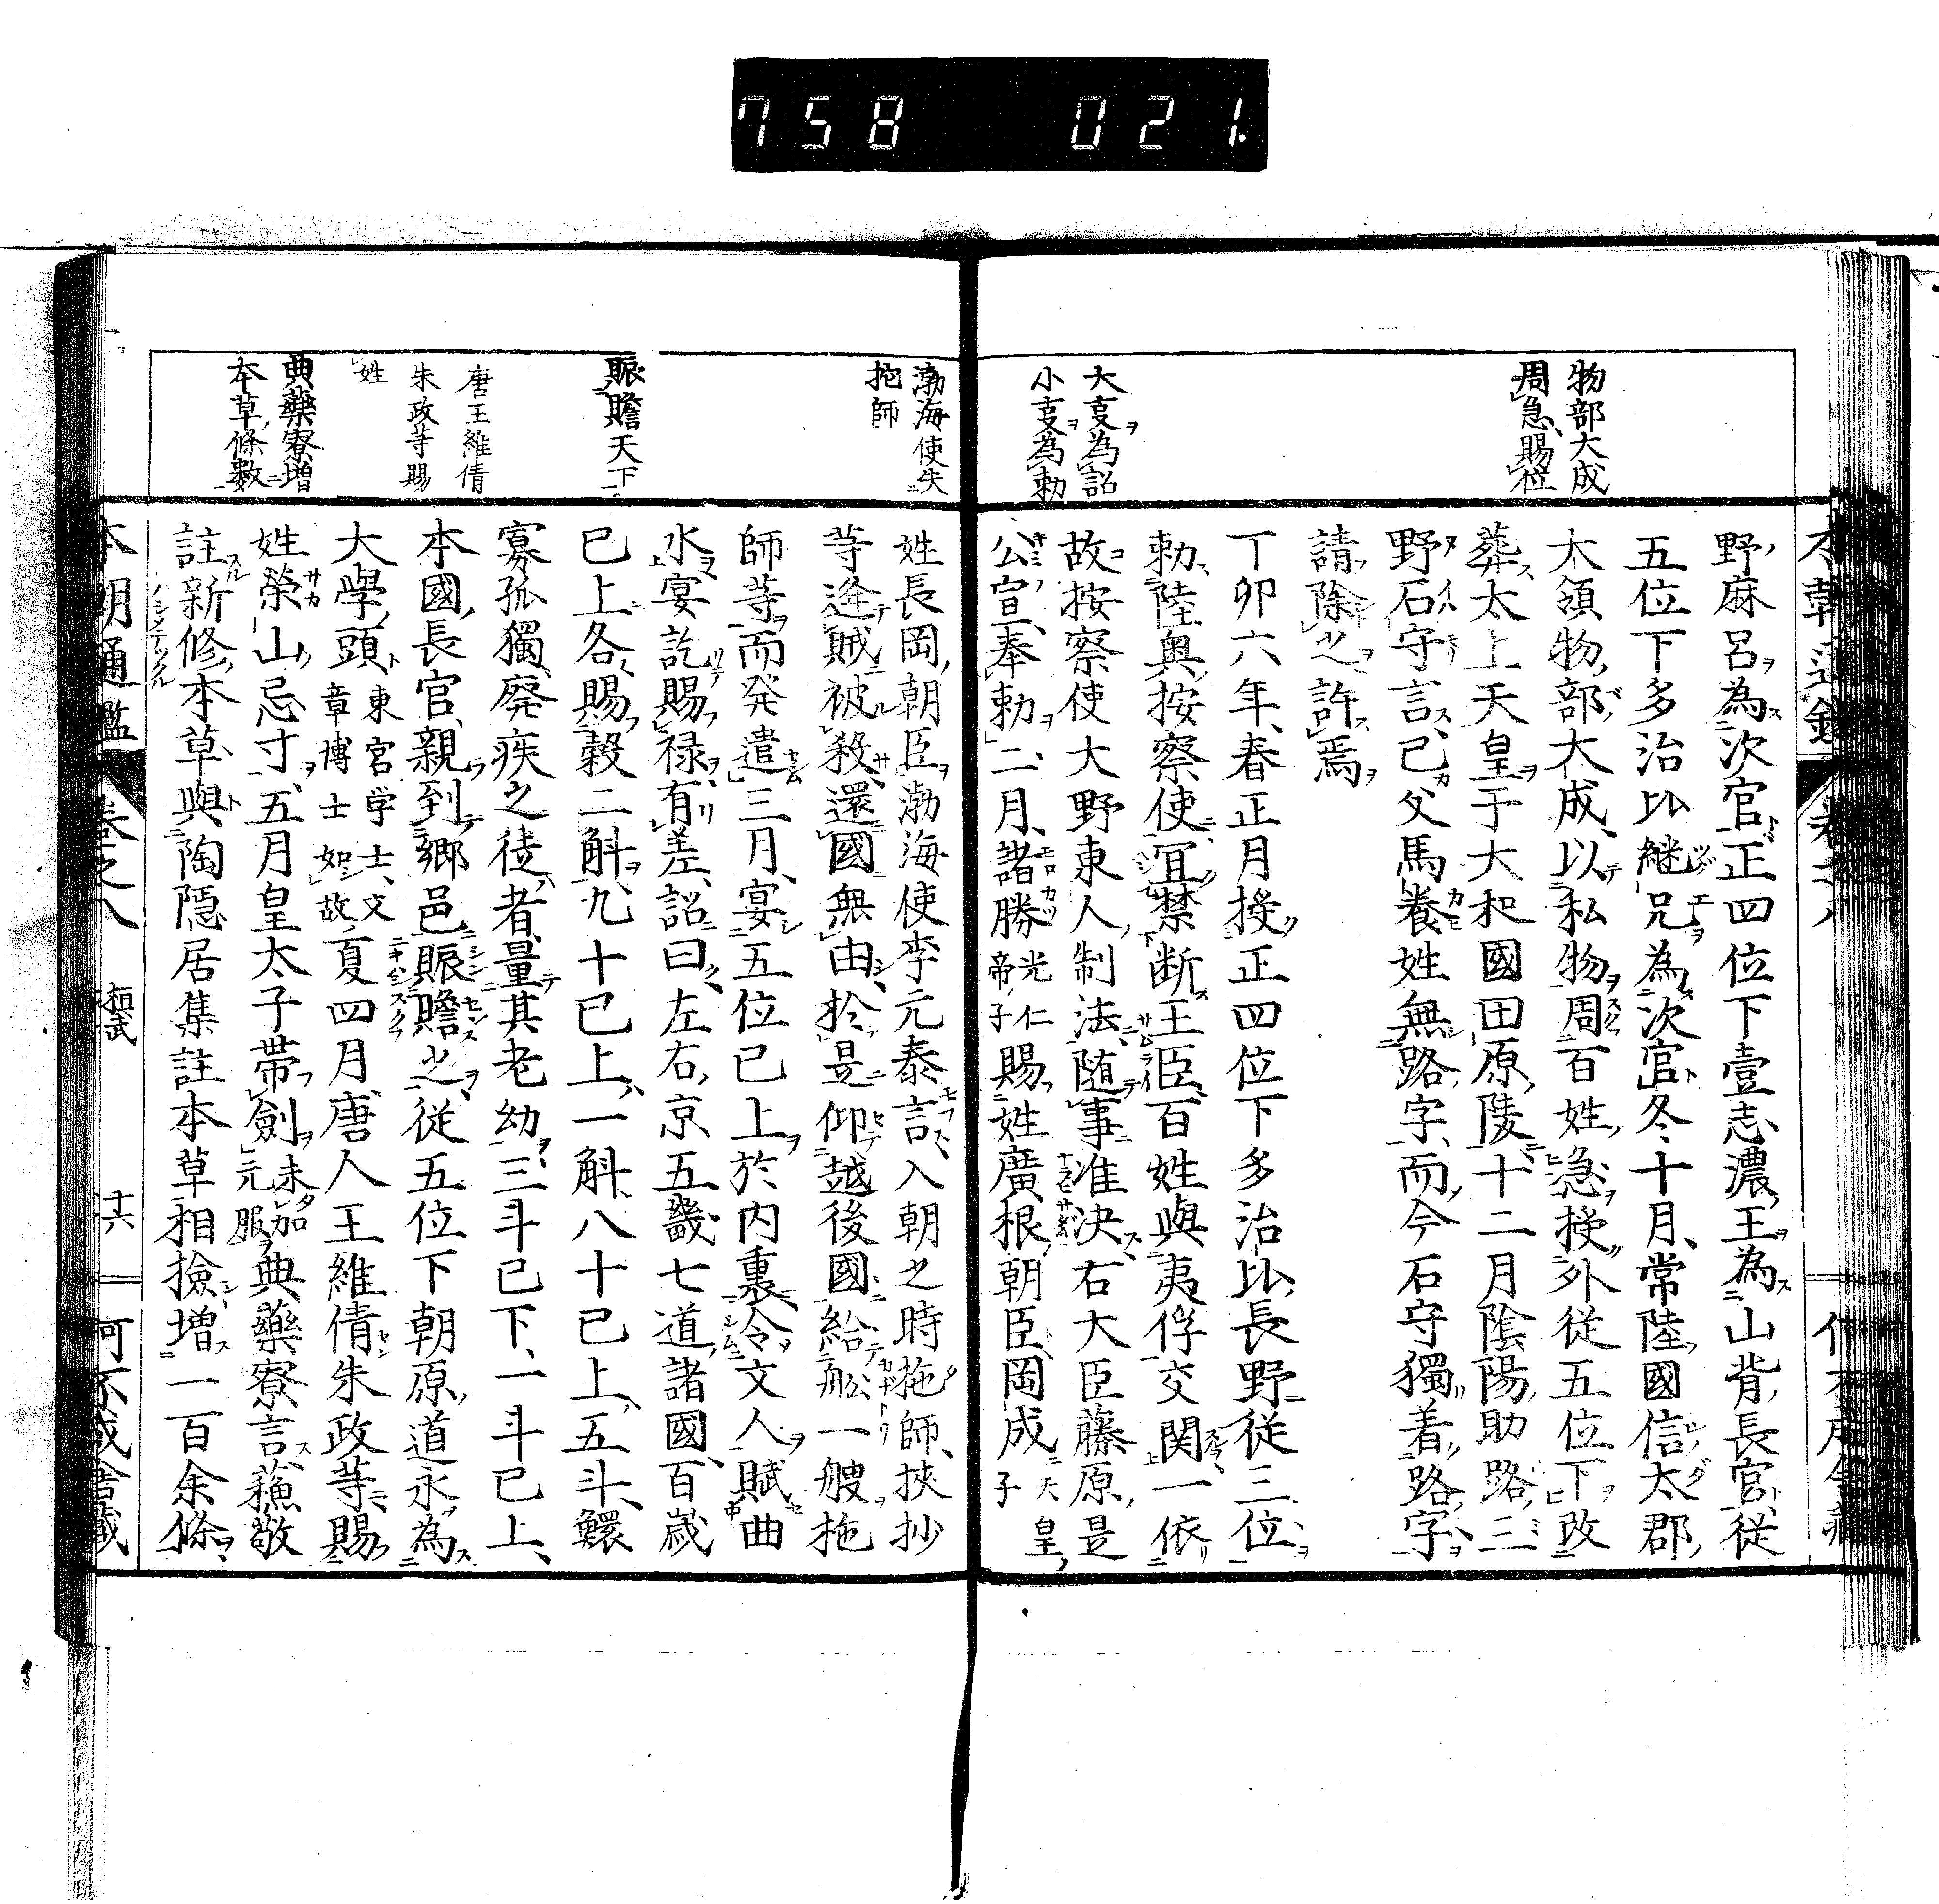 758 021.
物部大成
周急賜位
大事為詔
小事為勅
野麻呂為次官正四位下壹志濃王為山背長官従
五位下多治比継兄為次官冬十月常陸國信太郡
大領物部大成以私物周百姓急授外従五位下改
葬太上天皇于大和國田原陵十二月陰陽助路三
野石守言己父馬養姓無路字而今石守獨着路字
請除之許焉
丁卯六年春正月授正四位下多治比長野従三位
勅陸奥按察使冝禁断王臣百姓與夷俘交関一依
故按察使大野東人制法随事准决右大臣藤原是
公宣奉勅二月諸勝光仁帝子賜姓廣根朝臣岡成天皇子
渤海使失
拖師
賑贍天下
唐王維倩
朱政等賜
姓
典藥寮增
本草條數
姓長岡朝臣渤海使李元泰言入朝之時拖師挾抄
等逢賊被殺還國無由於是仰越後國給舩一艘拖
師等而発遣三月宴五位已上於内裏令文人賦曲
水宴訖賜禄有差詔曰左右京五畿七道諸國百歳
已上各賜穀二斛九十已上一斛八十已上五斗鰥
寡孤獨廃疾之徒者量其老幼三斗已下一斗已上
本國長官親到郷邑賑贍之従五位下朝原道永為
大學頭東宮学士文章博士如故夏四月唐人王維倩朱政等賜
姓榮山忌寸五月皇太子帯劍未加元服典藥寮言蘓敬
註新修本草與陶隠居集註本草相撿增一百余條
本朝通鑑 卷之八 桓武 十六